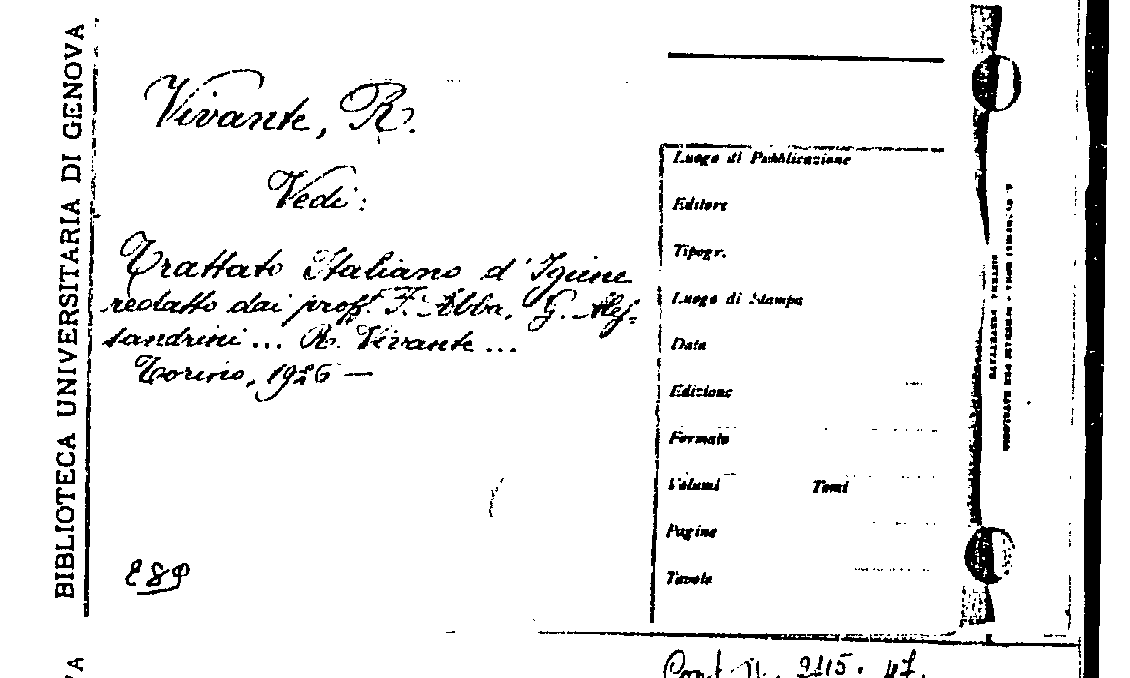 BIBLIOTECA UNIVERSITARIA DI GENOVA
Vivante, R.
Vedi:
Trattato Italiano d'Igiene
redatto dai proff. F. Abba, G. Ales-
sandrini ... R. Vivante ...
Torino, 1926 —
Luogo di Pubblicazione
Editore
Tipogr.
Luogo di Stampa
Data
Edizione
Formato
Volumi Tomi
Pagine
Tavole